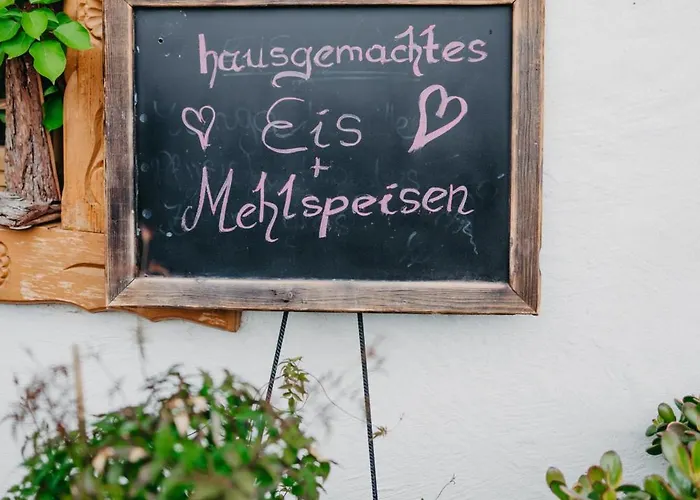 hausgemachtes
Eis
+
Mehlspeisen